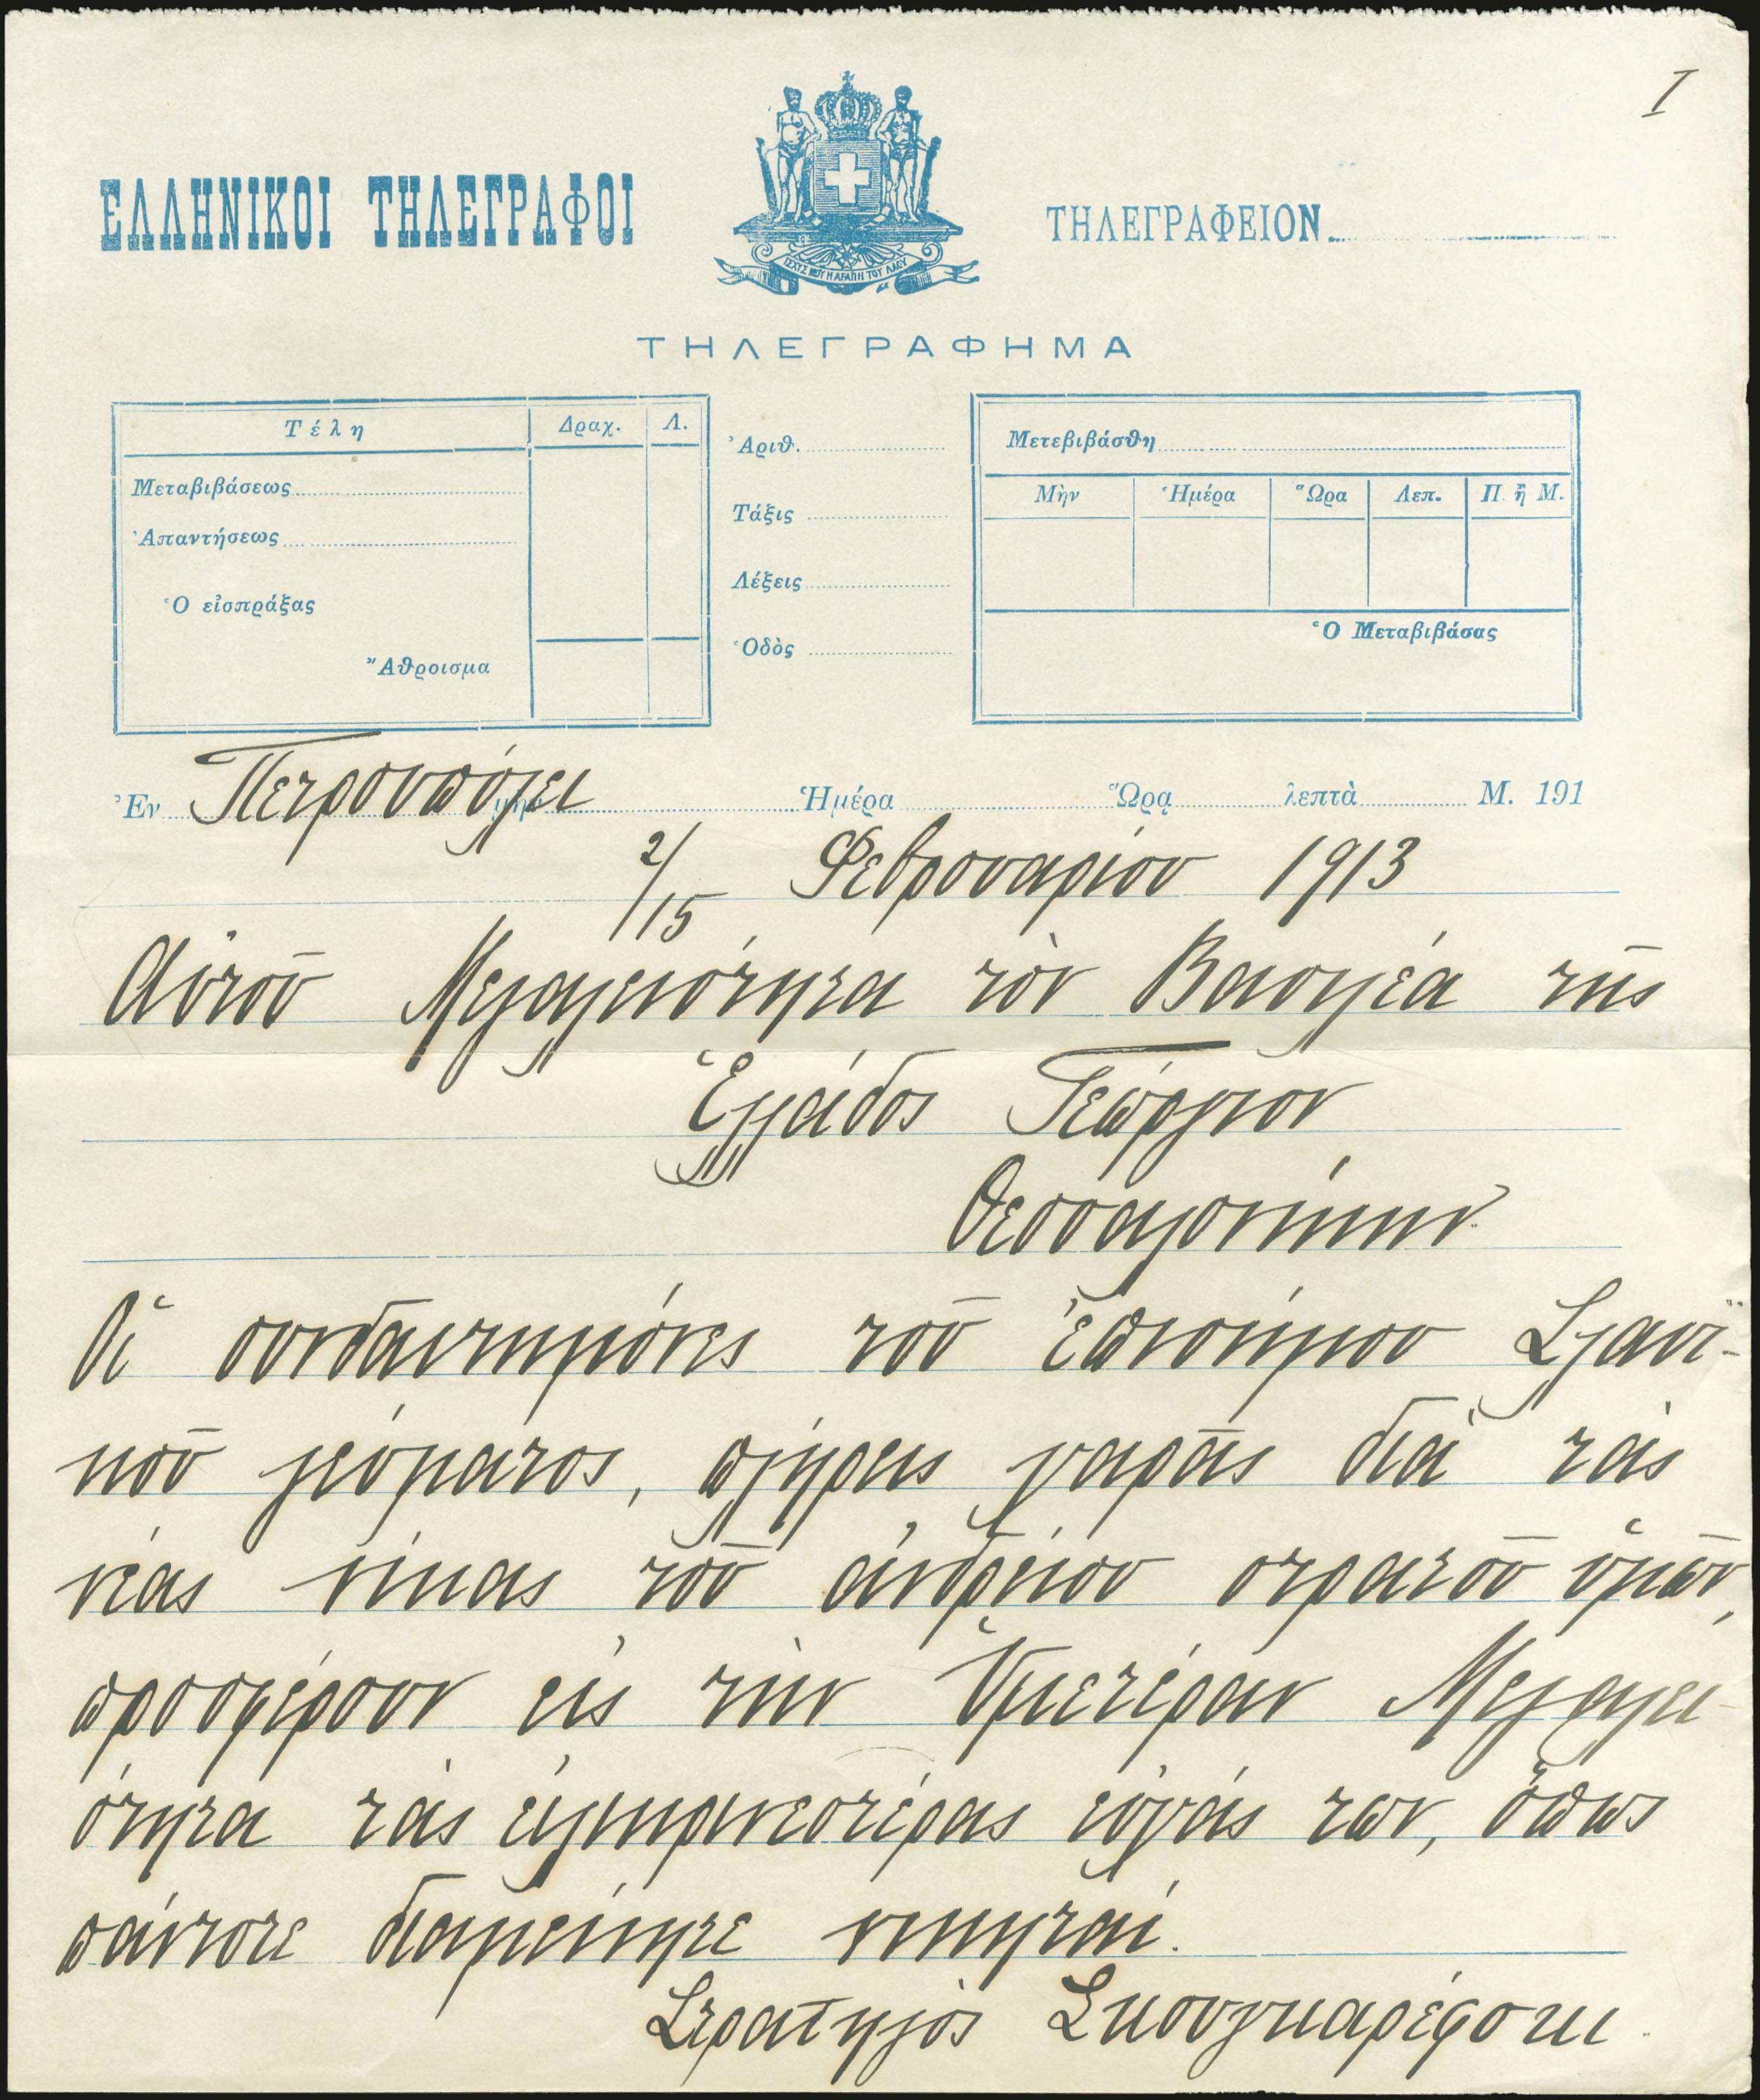 I
ΕΛΛΗΝΙΚΟΙ ΤΗΛΕΓΡΑΦΟΙ
ΙΣΧΥΣ ΜΟΥ Η ΑΓΑΠΗ ΤΟΥ ΛΑΟΥ
ΤΗΛΕΓΡΑΦΕΙΟΝ
ΤΗΛΕΓΡΑΦΗΜΑ
Τέλη Δραχ. Λ.
Μεταβιβάσεως
Ἀπαντήσεως
Ὁ εἰσπράξας
Ἄθροισμα
Ἀριθ.
Τάξις
Λέξεις
Ὁδὸς
Μετεβιβάσθη
Μὴν Ἡμέρα Ὥρα Λεπ. Π. ἢ Μ.
Ὁ Μεταβιβάσας
Ἐν Πετρουπόλει Ἡμέρα Ὥρᾳ λεπτὰ Μ. 191
2/15 Φεβρουαρίου 1913
Αὐτοῦ Μεγαλειότητα τὸν Βασιλέα τῆς
Ἑλλάδος Γεώργιον
Θεσσαλονίκην
Οἱ συνδαιτημόνες τοῦ ἐπισήμου Σλαυϊ-
κοῦ γεύματος, πλήρεις χαρᾶς διὰ τὰς
νέας νίκας τοῦ ἀνδρείου στρατοῦ ὑμῶν,
προσφέρουν εἰς τὴν Ὑμετέραν Μεγαλει-
ότητα τὰς εἰλικρινεστέρας εὐχάς των, ὅπως
πάντοτε διαμείνητε νικηταί.
Στρατηγὸς Σκουγκαρέφσκι